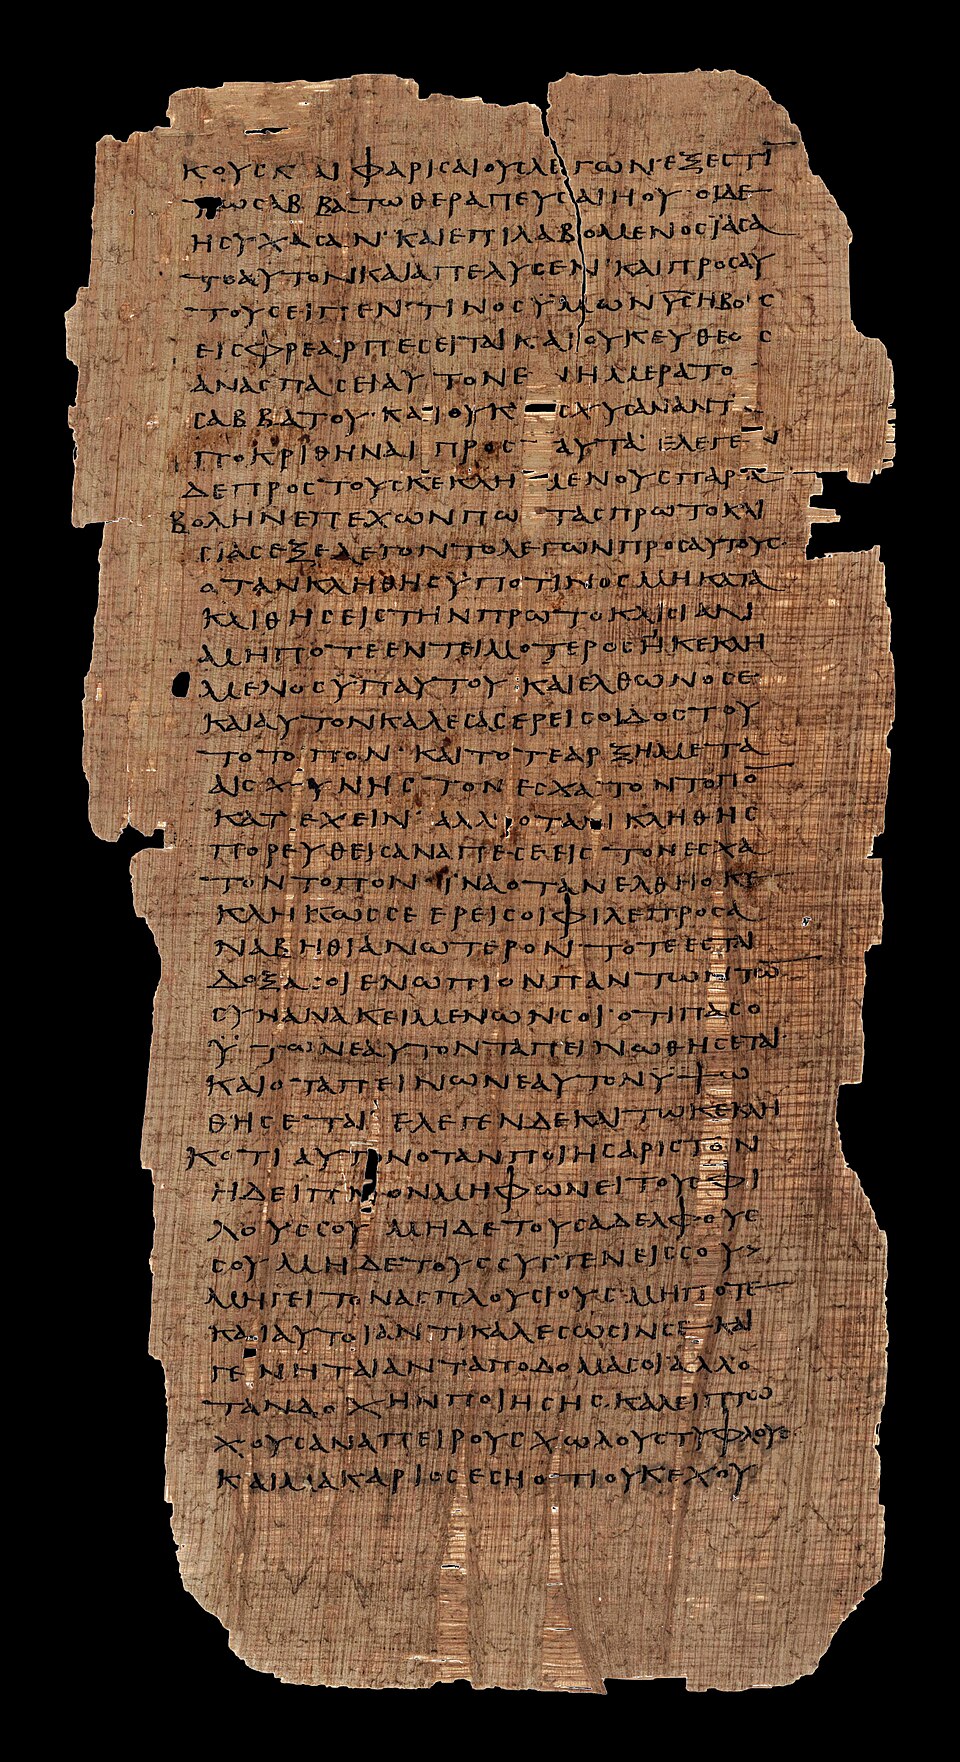 ΚΟΥСΚΑΙ ΦΑΡΙСΑΙΟΥСΛΕΓΩΝ·ΕΞΕСΤΙ
ΤΩСΑΒΒΑΤΩΘΕΡΑΠΕΥСΑΙΗΟΥ·ΟΙΔΕ
ΗСΥΧΑСΑΝ·ΚΑΙΕΠΙΛΑΒΟΜΕΝΟСΪΑСΑ
ΤΟΑΥΤΟΝΚΑΙΑΠΕΛΥСΕΝ·ΚΑΙΠΡΟСΑΥ
ΤΟΥСΕΙΠΕΝ·ΤΙΝΟСΫΜΩΝΥСΗΒΟΥС
ΕΙСΦΡΕΑΡΠΕСΕΙΤΑΙΚΑΙΟΥΚΕΥΘΕΩС
ΑΝΑСΠΑСΕΙΑΥΤΟΝΕΝΗΜΕΡΑΤΟ
СΑΒΒΑΤΟΥ·ΚΑΙΟΥΚ СΧΥСΑΝΑΝΤ
ΠΟΚΡΙΘΗΝΑΙ ΠΡΟС ΑΥΤΑ·ΕΛΕΓΕΝ
ΔΕΠΡΟСΤΟΥСΚΕΚΛΗΜΕΝΟΥСΠΑΡΑ
ΒΟΛΗΝΕΠΕΧΩΝΠΩ ΤΑСΠΡΩΤΟΚΛΙ
СΙΑСΕΞΕΛΕΓΟΝΤΟΛΕΓΩΝΠΡΟСΑΥΤΟΥС·
ΟΤΑΝΚΛΗΘΗСΫΠΟΤΙΝΟСΜΗΚΑΤΑ
ΚΛΙΘΗСΕΙСΤΗΝΠΡΩΤΟΚΛΙСΙΑΝ
ΜΗΠΟΤΕΕΝΤΕΙΜΟΤΕΡΟСΗΚΕΚΛΗ
ΜΕΝΟСΫΠΑΥΤΟΥ ΚΑΙΕΛΘΩΝΟСΕ
ΚΑΙΑΥΤΟΝΚΑΛΕСΑСΕΡΕΙСΟΙΔΟСΤΟΥ
ΤΟΤΟΠΟΝ·ΚΑΙΤΟΤΕΑΡΞΗΜΕΤΑ
ΑΙСΧΥΝΗС ΤΟΝΕСΧΑΤΟΝΤΟΠΟ
ΚΑΤΕΧΕΙΝ·ΑΛΛΟΤΑΝ ΚΛΗΘΗС
ΠΟΡΕΥΘΕΙСΑΝΑΠΕСΕΕΙС ΤΟΝΕСΧΑ
ΤΟΝΤΟΠΟΝ ΪΝΑΟΤΑΝΕΛΘΗΟΚΕ
ΚΛΗΚΩССΕ ΕΡΕΙСΟΙΦΙΛΕΠΡΟСΑ
ΝΑΒΗΘΙΑΝΩΤΕΡΟΝ·ΤΟΤΕΕСΤΑΙ
ΔΟΞΑСΟΙΕΝΩΠΙΟΝΠΑΝΤΩΝΤΩ
СΥΝΑΝΑΚΕΙΜΕΝΩΝСΟΙ·ΟΤΙΠΑСΟ
ΫΨΩΝΕΑΥΤΟΝΤΑΠΕΙΝΩΘΗСΕΤΑΙ·
ΚΑΙΟΤΑΠΕΙΝΩΝΕΑΥΤΟΝΥΨΩ
ΘΗСΕΤΑΙ ΕΛΕΓΕΝΔΕΚΑΙΤΩΚΕΚΛΗ
ΚΟΤΙΑΥΤΟΝΟΤΑΝΠΟΙΗСΑΡΙСΤΟΝ
ΗΔΕΙΠΝΟΝΜΗΦΩΝΕΙΤΟΥСΦΙ
ΛΟΥССΟΥ ΜΗΔΕΤΟΥСΑΔΕΛΦΟΥС
СΟΥΜΗΔΕΤΟΥССΥΓΓΕΝΕΙССΟΥ
ΜΗΓΕΙΤΟΝΑСΠΛΟΥСΙΟΥС·ΜΗΠΟΤΕ
ΚΑΙΑΥΤΟΙΑΝΤΙΚΑΛΕСΩСΙΝСΕ ΚΑΙ
ΓΕΝΗΤΑΙΑΝΤΑΠΟΔΟΜΑСΟΙΑΛΛΟ
ΤΑΝΔΟΧΗΝΠΟΙΗСΗС·ΚΑΛΕΙΠΤΩ
ΧΟΥСΑΝΑΠΕΙΡΟΥСΧΩΛΟΥСΤΥΦΛΟΥС
ΚΑΙΜΑΚΑΡΙΟСΕСΗΟΤΙΟΥΚΕΧΟΥ